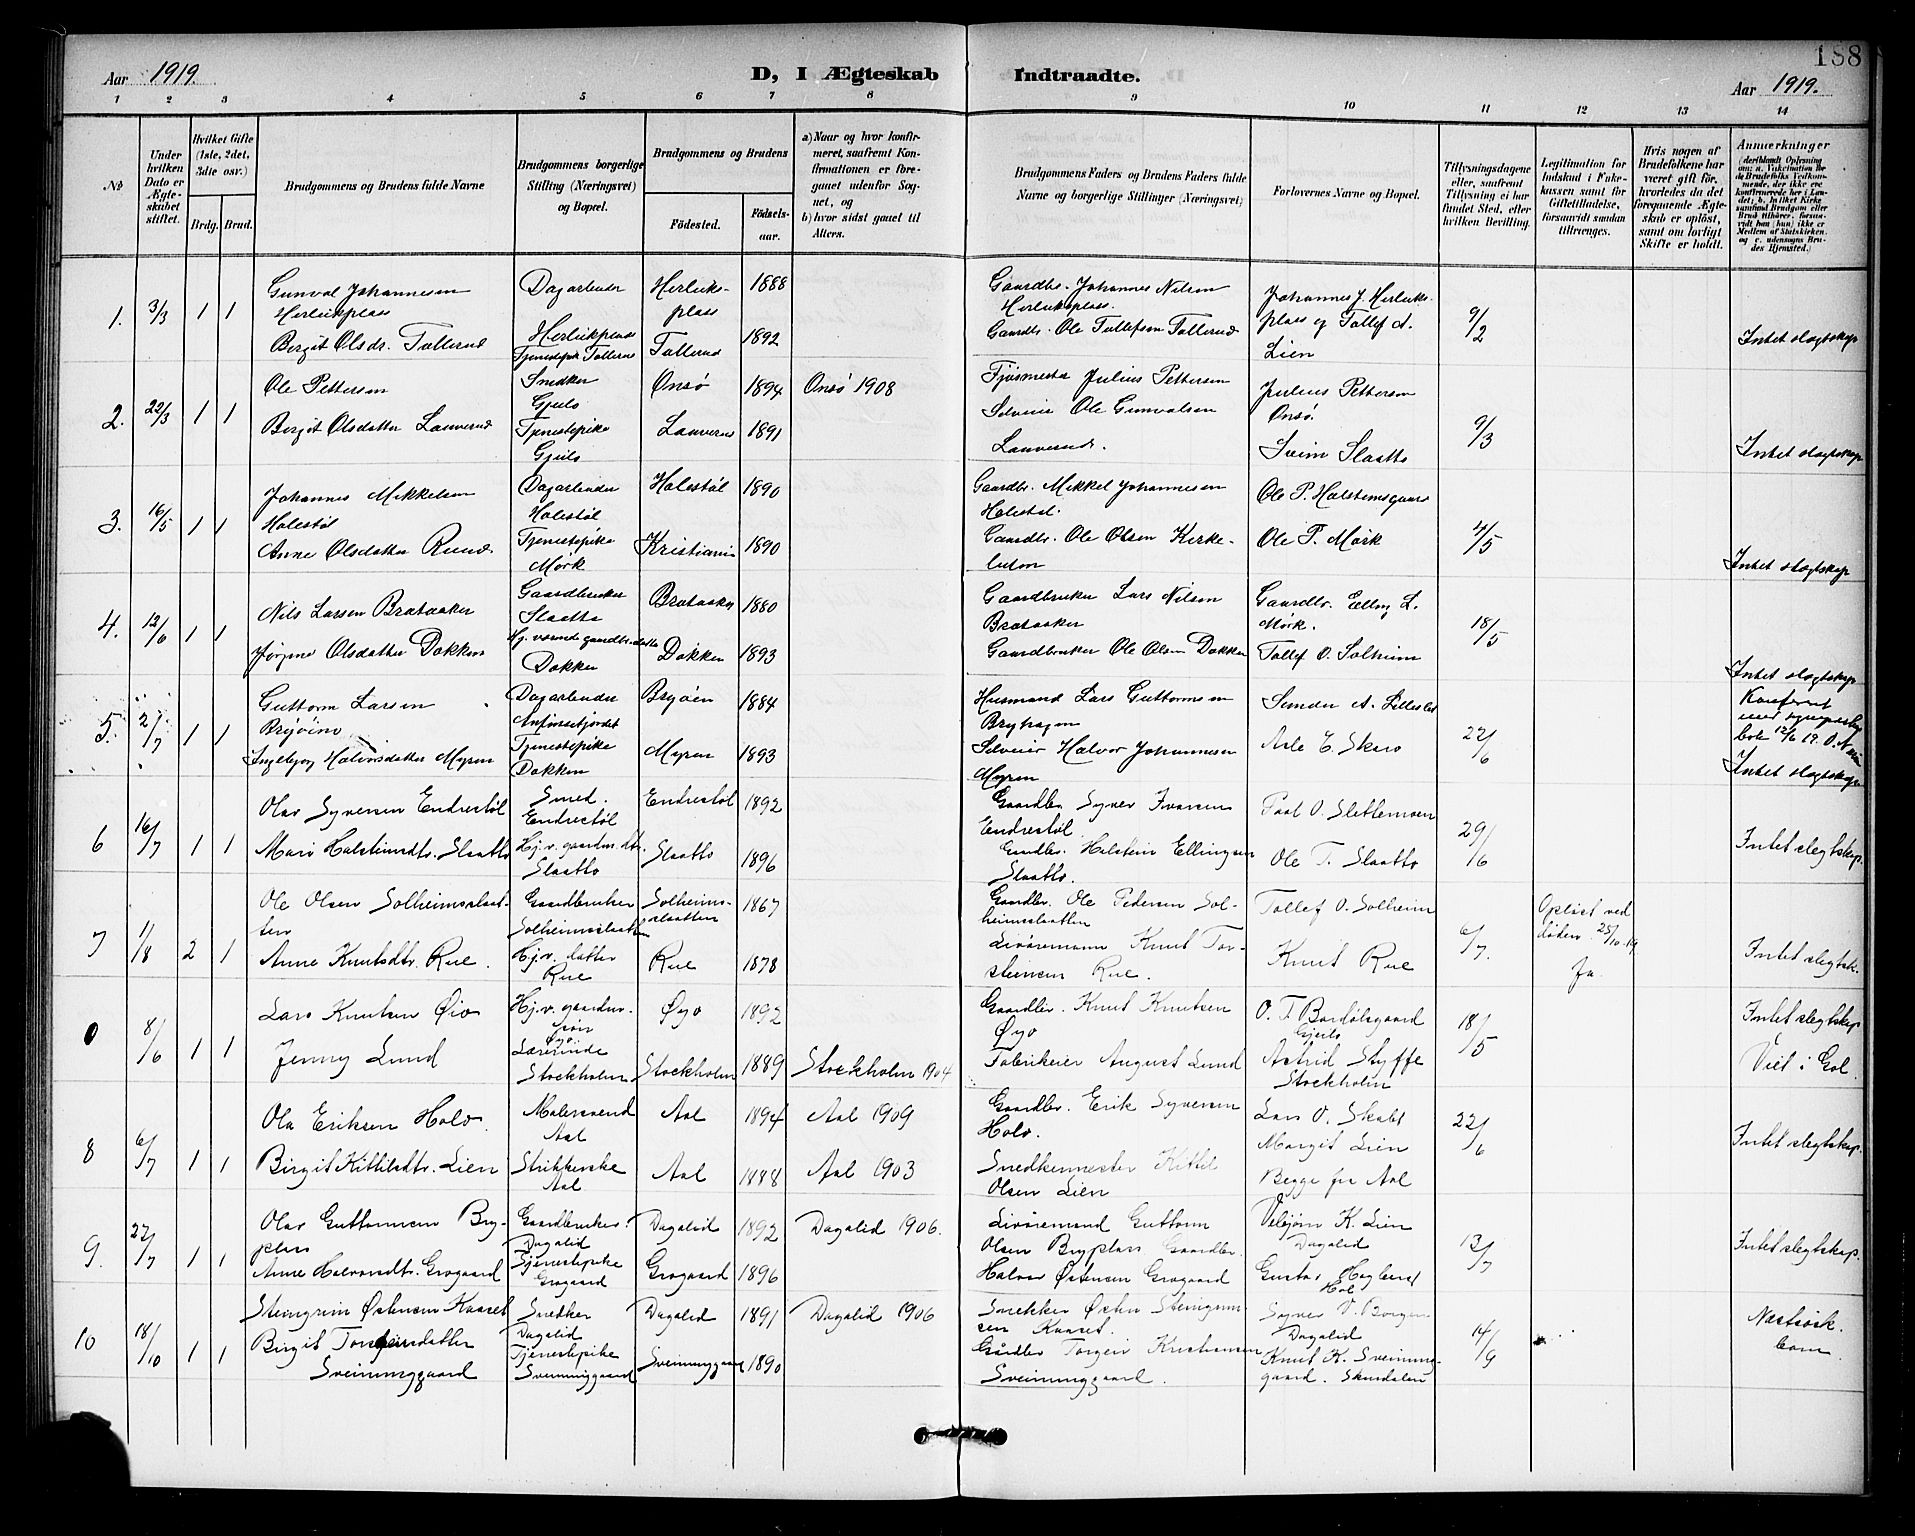 188
Aar 1919.
D, I Ægteskab Indtraadte.
Aar 1919.
1 2 3 4 5 6 7 8 9 10 11 12 13 14
No
Under hvilken Dato er Ægteskabet stiftet.
Hvilket Gifte (1ste, 2det, 3die osv.)
Brdg. Brud.
Brudgommens og Brudens fulde Navne
Brudgommens borgerlige Stilling (Næringsvei) og Bopæl.
Brudgommens og Brudens
Fødested.
Fødselsaar.
a) Naar og hvor konfirmeret, saafremt Konfirmationen er foregaaet udenfor Sognet, og
b) hvor sidst gaaet til Alters.
Brudgommens Faders og Brudens Faders fulde Navne og borgerlige Stillinger (Næringsvei)
Forlovernes Navne og Bopæl.
Tillysningsdagene eller, saafremt Tillysning ei har fundet Sted, efter hvilken Bevilling.
Legitimation for Indskud i Enkekassen samt for Giftetilladelse, forsaavidt saadan tiltrænges.
Hvis nogen af Brudefolkene har været gift før, hvorledes da det foregaaende Ægteskab er opløst, samt om lovligt Skifte er holdt.
Anmærkninger
1. 3/3 1 1
Gunval Johannesen
Herleiksplass
Birgit Olsdr. Tollerud
Dagarbeider
Herleikplass
Tjenestepik Tollerud
Herleiksplass
Tollerud
1888
1892
Gaardbr. Johannes Nilsen
Herleiksplass.
Gaardbr. Ole Tollefsen Tollerud
Johannes J. Herleiksplass og Tollef A.
Lien
9/2
Intet slegtskap
2. 22/3 1 1
Ole Pettersen
Birgit Olsdatter Lauverud
Snedker
Gjeilo
Tjenestepike
Gjeilo
Onsø
Lauverud
1894
1891
Onsø 1908
Julius Pettersen
Selveier Ole Gunvalsen
Lauverud.
Julius Pettersen
Onsø.
Svein Slaatto
9/3
Intet slegtskap
3. 16/5 1 1
Johannes Mikkelsen
Holestøl
Anne Olsdatter Ruud
Dagarbeider
Holestøl
Tjenestepike
Mørk
Holestøl
Kristiania
1890
1890
Gaardbr. Mikkel Johannesen
Holestøl.
Gaardbr. Ole Olsen Kirkebøen
Ole P. Halsteinsgaard
Ole P. Mørk
4/5
Intet slegtskap
4. 12/6 1 1
Nils Larsen Brataaker
Jørgine Olsdatter Dokken
Gaardbruker
Slaatto
Hj. værende gaardbr.datter
Dokken
Brataaker
Dokken
1880
1893
Gaardbruker Lars Nilsen
Brataaker
Gaardbruker Ole Olsen Dokken
Gaardbr. Elling L.
Mørk.
Tollef O. Solheim
18/5
Intet slegtskap
5. 2/7 1 1
Guttorm Larsen
Bryøino
Ingeborg Halvorsdatter Myren
Dagarbeider
Tjenestepike
Dokken
Bryøen
Myren
1884
1893
Husmand Lars Guttormsen
Bryhagen
Selveier Halvor Johannesen
Myren
Arle E. Skaro
22/6
Konferert
Intet slegtskap
6 16/7 1 1
Olav Syversen Endrestøl
Mari Halsteinsdtr. Slaatto
Smed.
Endrestøl
Hj.v. gaardm.dtr.
Slaatto
Endrestøl
Slaatto
1892
1896
Gaardbr. Syver Ivarsen
Endrestøl
Gaardbr. Halstein Ellingsen
Slaatto.
Paal O. Slettemoen
Ole T. Slaatto
29/6
Intet slegtskap.
7 1/8 2 1
Ole Olsen Solheimsslaatten
Anne Knutsdtr. Rue.
Gaardbruker
Solheimsslaatten
Hj.v. datter
Rue
Solheimsslaatten
Rue
1867
1878
Gaardbr. Ole Pedersen Solheimsslaatten
Livøremann Knut Torsteinsen Rue.
Tollef O. Solheim
Knut Rue
6/7.
Opløst ved
døden. 25/10-19
Ja.
Intet slegtsk.
0 8/6 1 1
Lars Knutsen Øio
Jenny Lund
Hj.v. gaardm.
søn
Øyo.
Lærerinde
Stockholm
Øyo
Stockholm
1892
1889
Stockholm 1904
Gaardbr. Knut Knutsen
Øyo
Fabrikeier August Lund
O. T. Bardølsgaard
Gjeilo
Astrid Styffe
Stockholm
18/5
Intet slegtskap.
Viet i Gol.
8 6/7 1 1
Ola Eriksen Holo
Birgit Kittilsdtr. Lien
Malersvend
Aal
Strikkerske
Aal
Aal
Aal
1894
1888
Aal 1909
Aal 1903
Gaardbr. Erik Syversen
Holo.
Snedkermester Kittil
Olsen Lien
Lars O. Skalet
Margit Lien
Begge fra Aal
22/6
Intet slegtskap.
9. 27/7 1 1
Olav Guttormsen Bryplass
Anne Halvorsdtr. Grøgaard
Gaardbruker.
Dagalid
Tjenestepike
Grøgaard
Dagalid
Grøgaard
1892
1896
Dagalid 1906.
Livøremand Guttorm
Olsen Bryplass Gaardbr.
Halvor Østensen Grøgaard
Vebjørn K. Lien
Dagalid
Gustav Høglund
Hol
13/7
Intet slegtskap.
10 18/10 1 1
Steingrim Østensen Kaaset
Birgit Torgeirsdatter
Sveinunggaard
Snedker
Dagalid
Tjenestepike
Sveinunggaard
Dagalid
Sveinunggaard
1891
1890
Dagalid 1906
Snekker Østen Steingrimsen Kaaset.
Gårdbr Torgeir Kristiansen
Sveinunggaard.
Syver V. Borgen
Dagalid
Knut K. Sveinunggaard. Skurdalen
14/9
Næstsøsk.
barn.